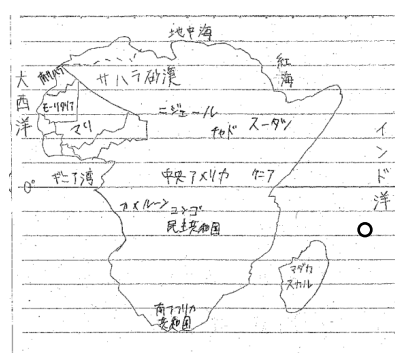 地中海
紅海
大西洋
西サハラ
サハラ砂漠
モーリタニア
マリ
ニジェール
チャド
スーダン
インド洋
0°
ギニア湾
中央アメリカ
ケニア
カメルーン
コンゴ
民主共和国
マダガ
スカル
南アフリカ
共和国